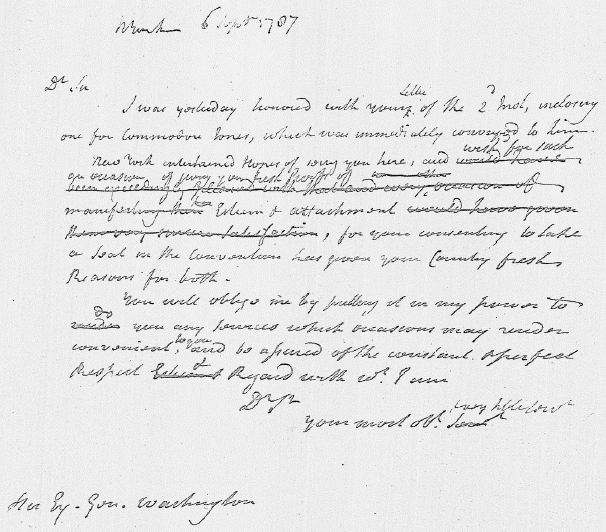 NYork 6 Sept. 1787
Dr. Sir
Letter
I was yesterday honored with yours of the 2d Inst, inclosing
one for Commodore Jones, which was immediately conveyed to him.
wish for such
New York entertained Hopes of seeing you here, and would have
an occasion of giving you fresh Proofs of
been exceedingly pleased with that and every occasion of
manifesting their Esteem & attachment would have given
them very sincere Satisfaction, for your consenting to take
a Seat in the Convention has given your Country fresh
Reasons for both.
You will oblige me by putting it in my power to
do
render you any services which occasions may render
to you
convenient, and be assured of the constant & perfect
Respect Esteem & Regard with wh. I am
Dr Sr
very hble Servt
your most obt. Servt
His Exy. Gen. Washington